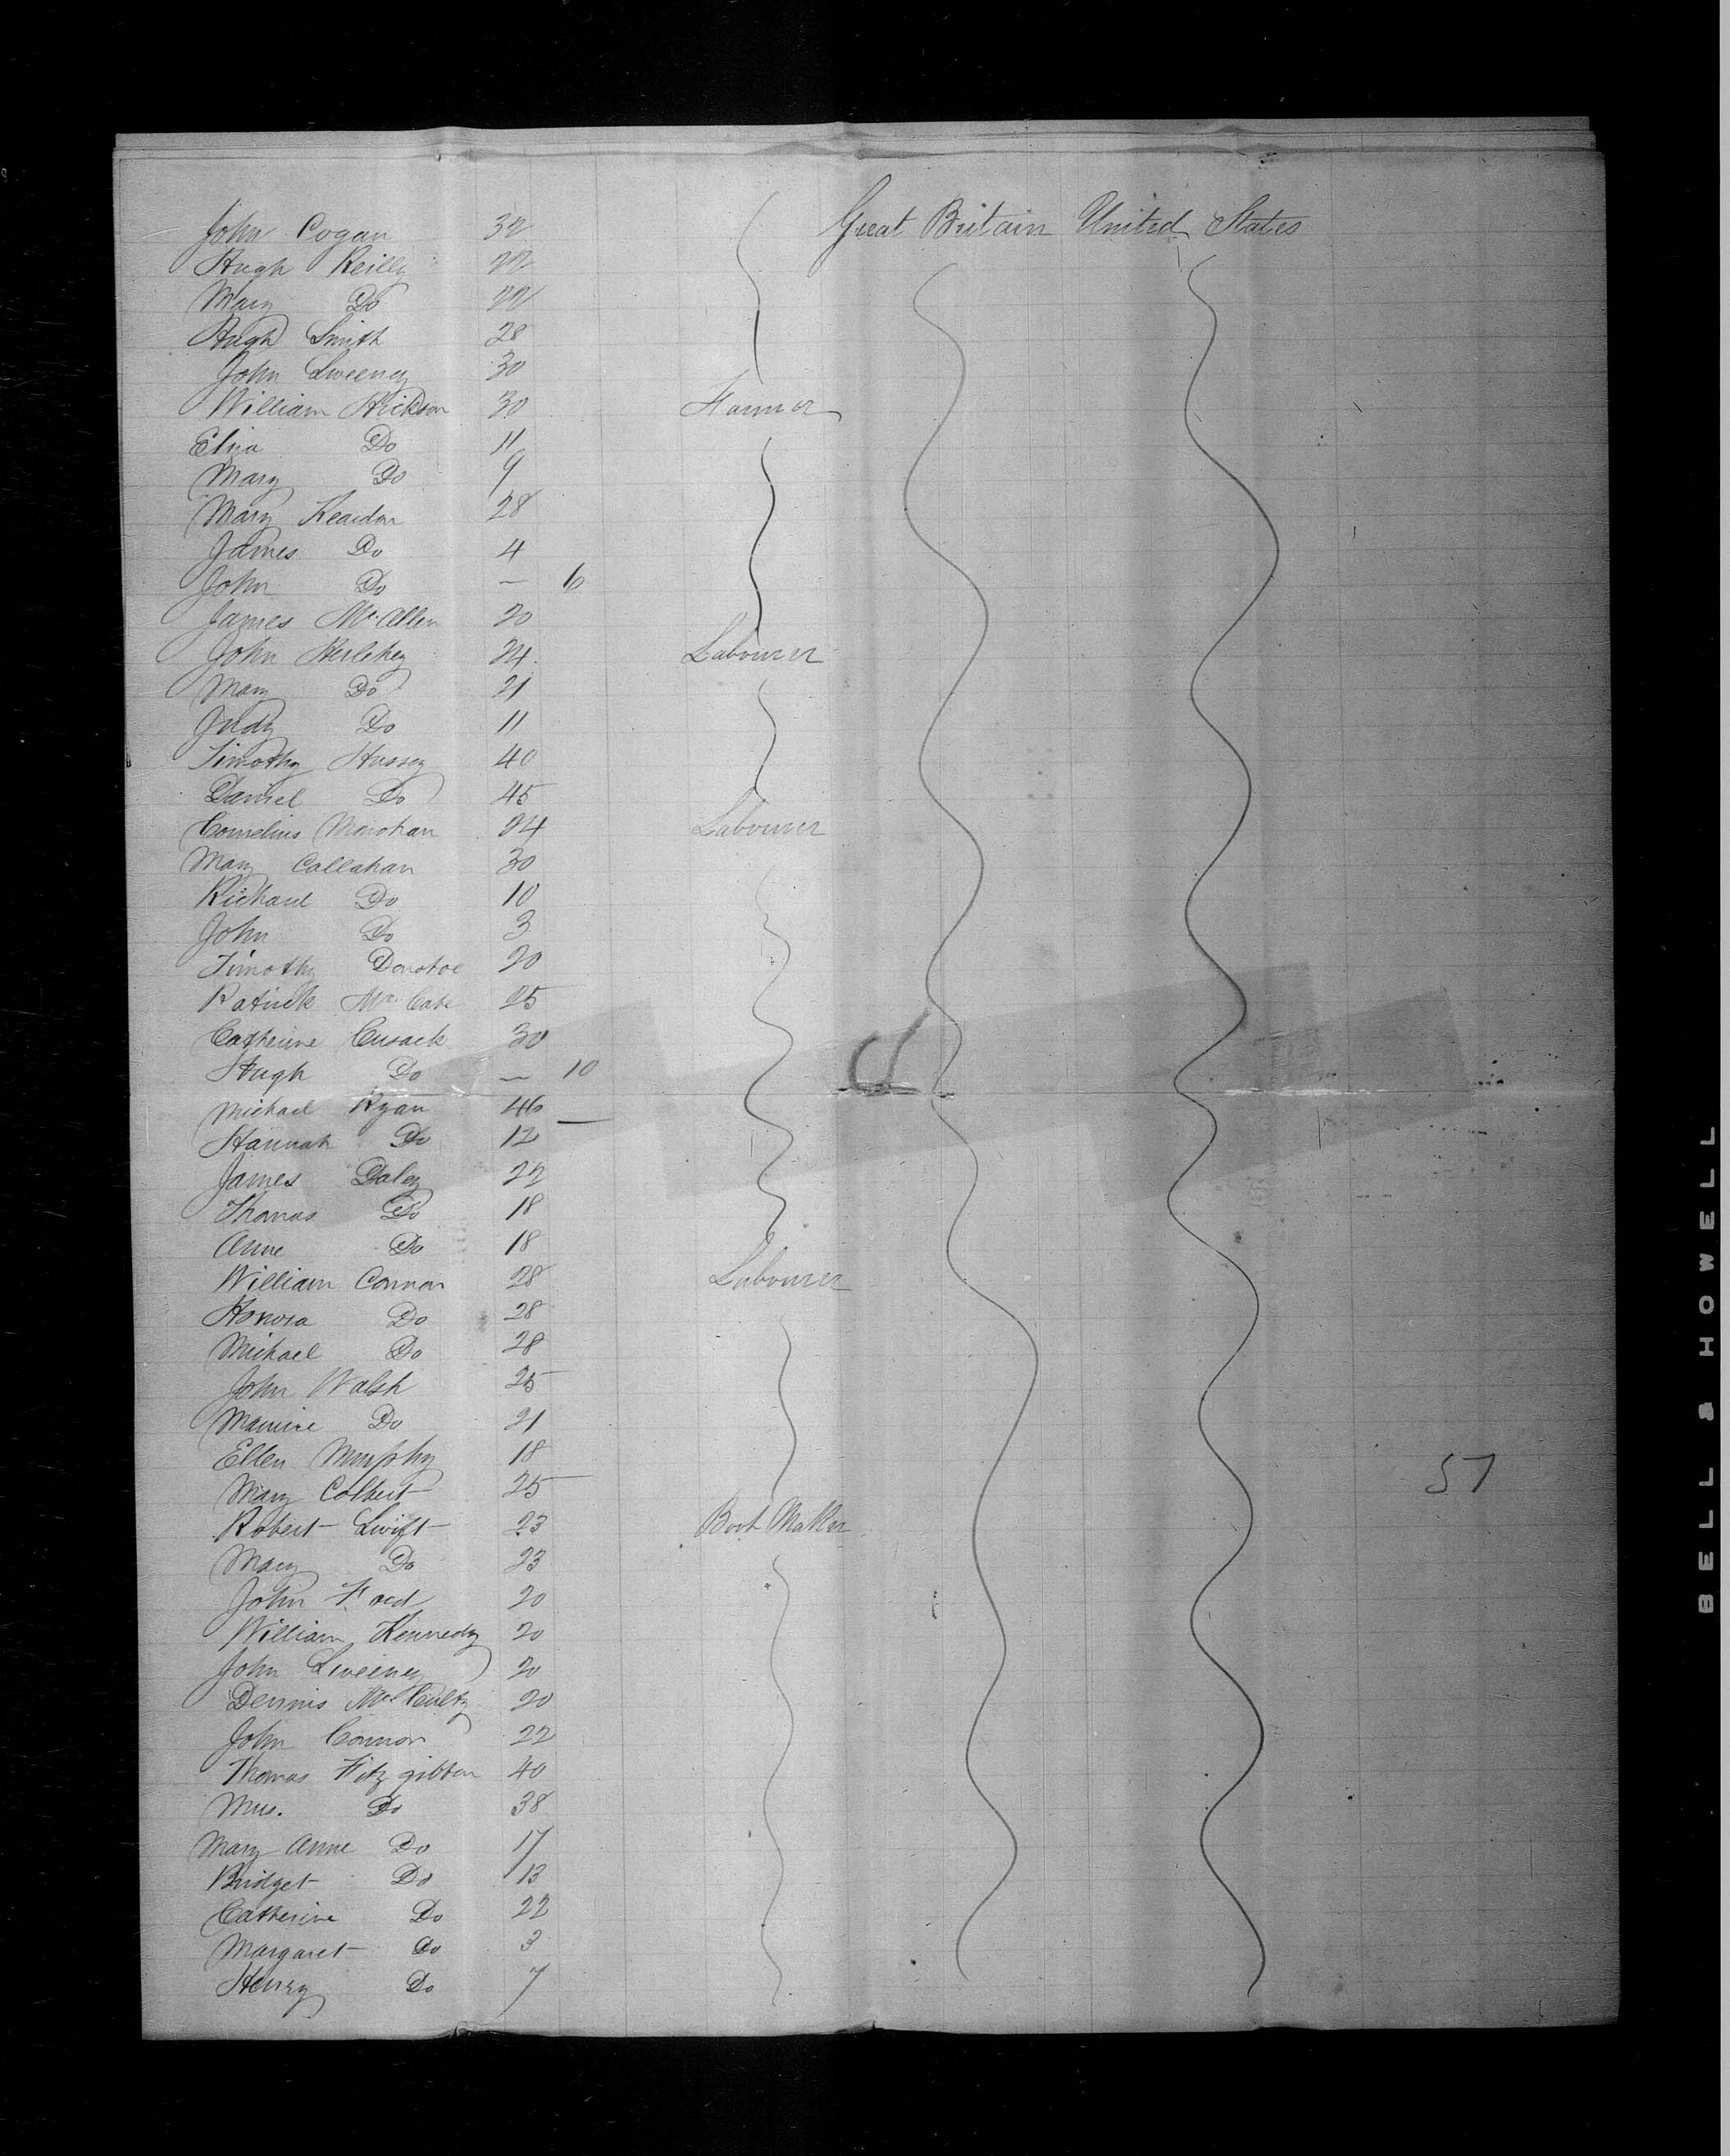 John Cogan 32 Great Britain United States
Hugh Reilly 22
Mary Do 22
Hugh Smith 28
John Sweeney 30
William Hickson 30 Farmer
Eliza Do 11
Mary Do 9
Mary Reardon 28
James Do 4
John Do — 6
James McAllen 20
John Herlihey 24 Labourer
Mary Do 21
Judy Do 11
Timothy Hussey 40
Daniel Do 45
Cornelius Monohan 24 Labourer
Mary Callahan 30
Richard Do 10
John Do 3
Timothy Donohoe 20
Patrick McCabe 25
Catherine Cusack 30
Hugh Do — 10
Michael Ryan 46 —
Hannah Do 12
James Daley 22
Thomas Do 18
Anne Do 18
William Connor 28 Labourer
Honora Do 28
Michael Do 28
John Walsh 25
Maurice Do 21
Ellen Murphy 18
Mary Colbert 25
57
Robert Swift 23 Boot Maker
Mary Do 23
John Ford 20
William Kennedy 20
John Sweeney 20
Dennis 20
John Connor 22
Thomas Fitzgibbon 40
Mrs. Do 38
Mary Anne Do 17
Bridget Do 13
Catherine Do 22
Margaret Do 3
Henry Do 7
BELL & HOWELL